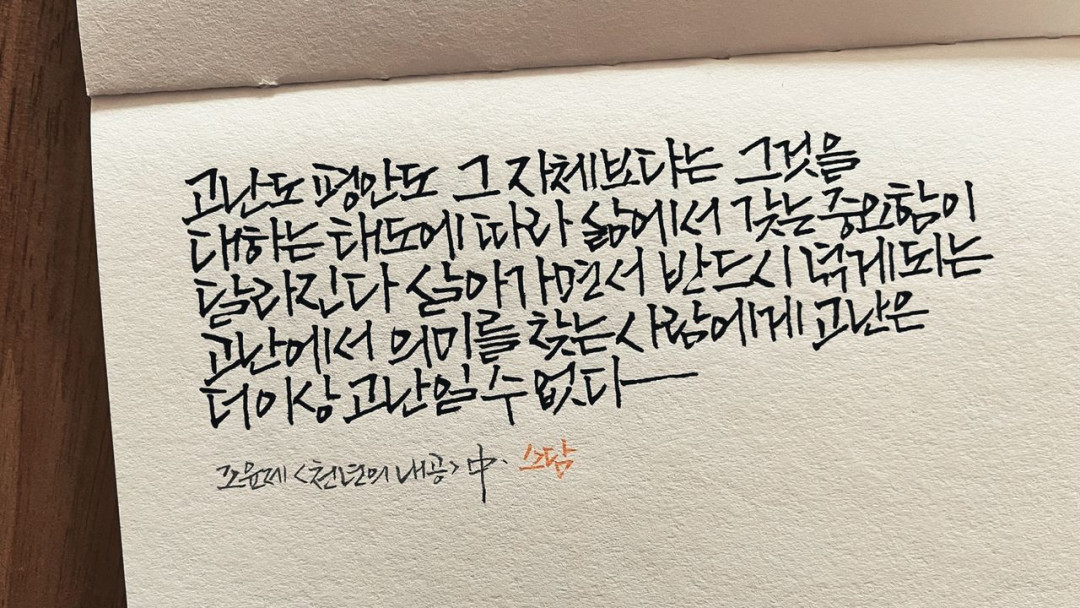 고난도 평안도 그 자체보다는 그것을
대하는 태도에 따라 삶에서 갖는 중요함이
달라진다 삶아가면서 반드시 겪게되는
고난에서 의미를 찾는 사람에게 고난은
더이상 고난일 수 없다
조윤제 <천년의 내공> 中. 스담